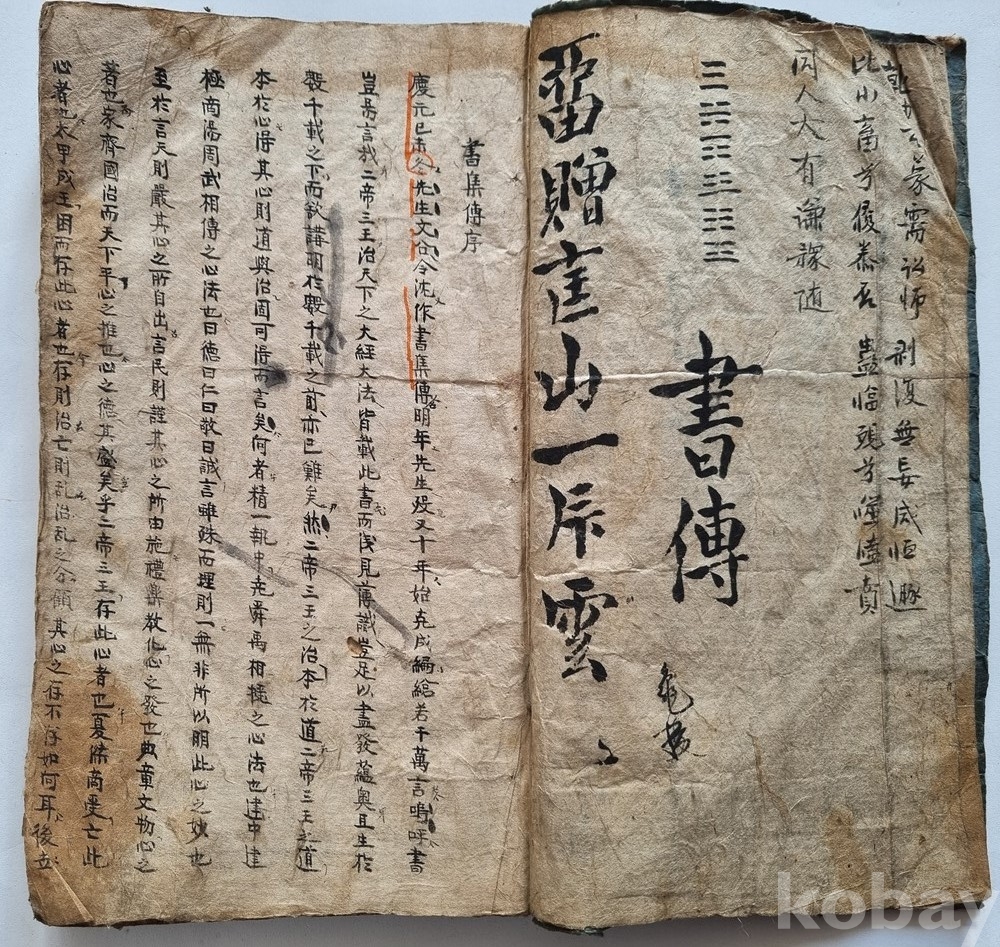 蒙需訟師 剥復無妄咸恒遯
比小畜兮履泰否 蠱臨觀兮噬嗑賁
同人大有謙豫隨
書傳
畱贈匡山一片雲
書集傳序
慶元己未冬先生文公令沈作書集傳明年先生歿又十年始克成編緫若干萬言嗚呼書
豈易言哉二帝三王治天下之大經大法皆載此書而浅見薄識豈足以盡發蘊奥且生於
數千載之下而欲講明於數千載之前亦已難矣然二帝三王之治本於道二帝三王之道
本於心得其心則道與治固可得而言矣何者精一執中堯舜禹相授之心法也建中建
極商湯周武相傳之心法也曰德曰仁曰敬曰誠言雖殊而理則一無非所以明此心之妙也
至於言天則嚴其心之所自出言民則謹其心之所由施禮樂教化心之發也典章文物心之
著也家齊國治而天下平心之推也心之德其盛矣乎二帝三王存此心者也夏桀商受亡此
心者也太甲成王困而存此心者也存則治亡則乱治乱之分顧其心之存不存如何耳後世
kobay